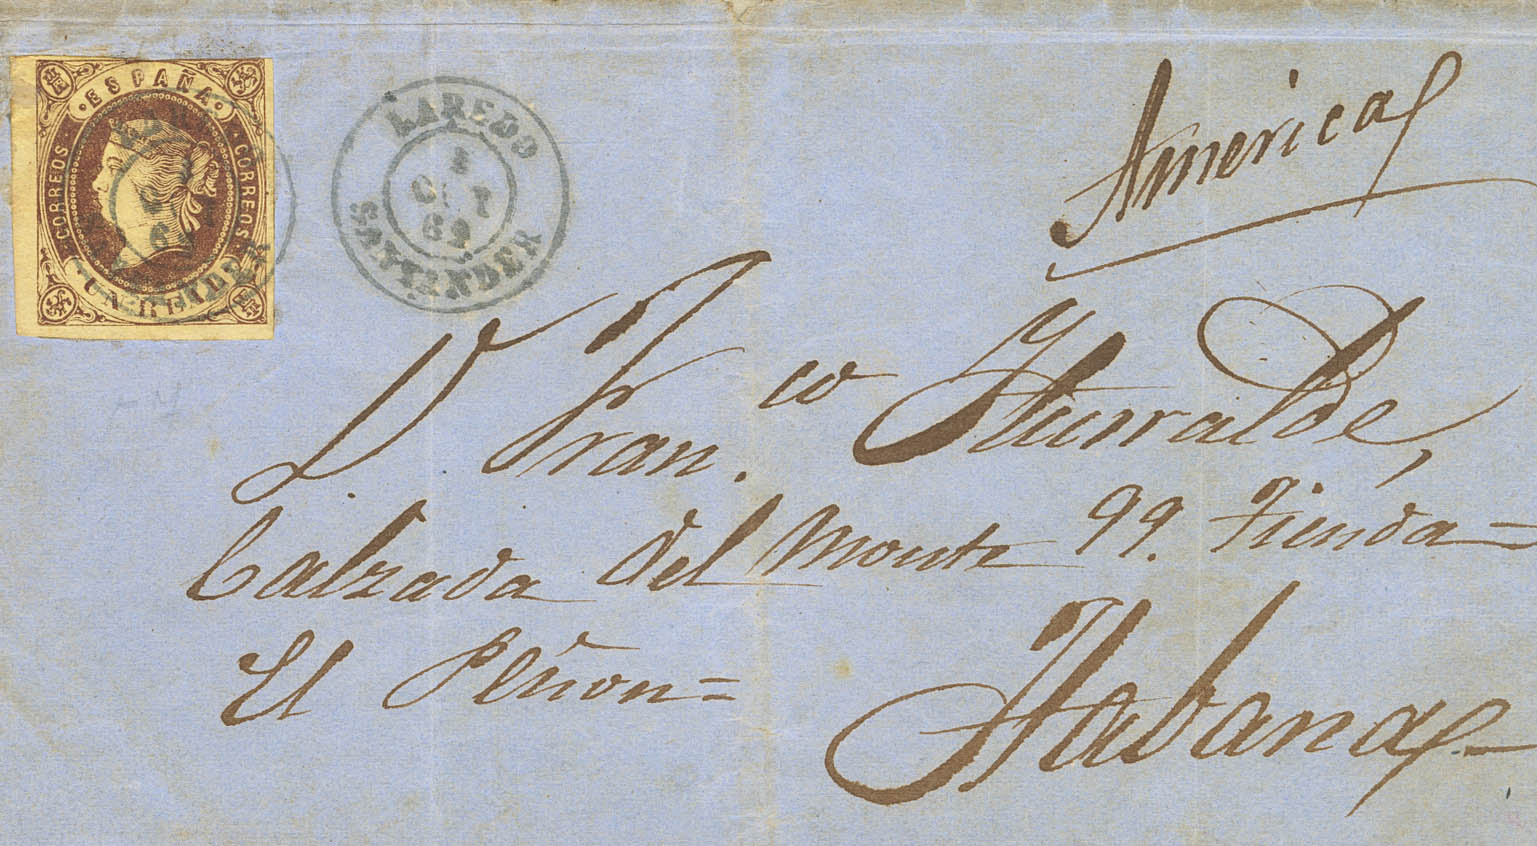 · ESPAÑA ·
CORREOS
CORREOS
LAREDO
OCT
62
SANTANDER
America
D. Fran.co Iturralde,
Calzada del Monte 99. Tienda=
El Peñon=
Habana